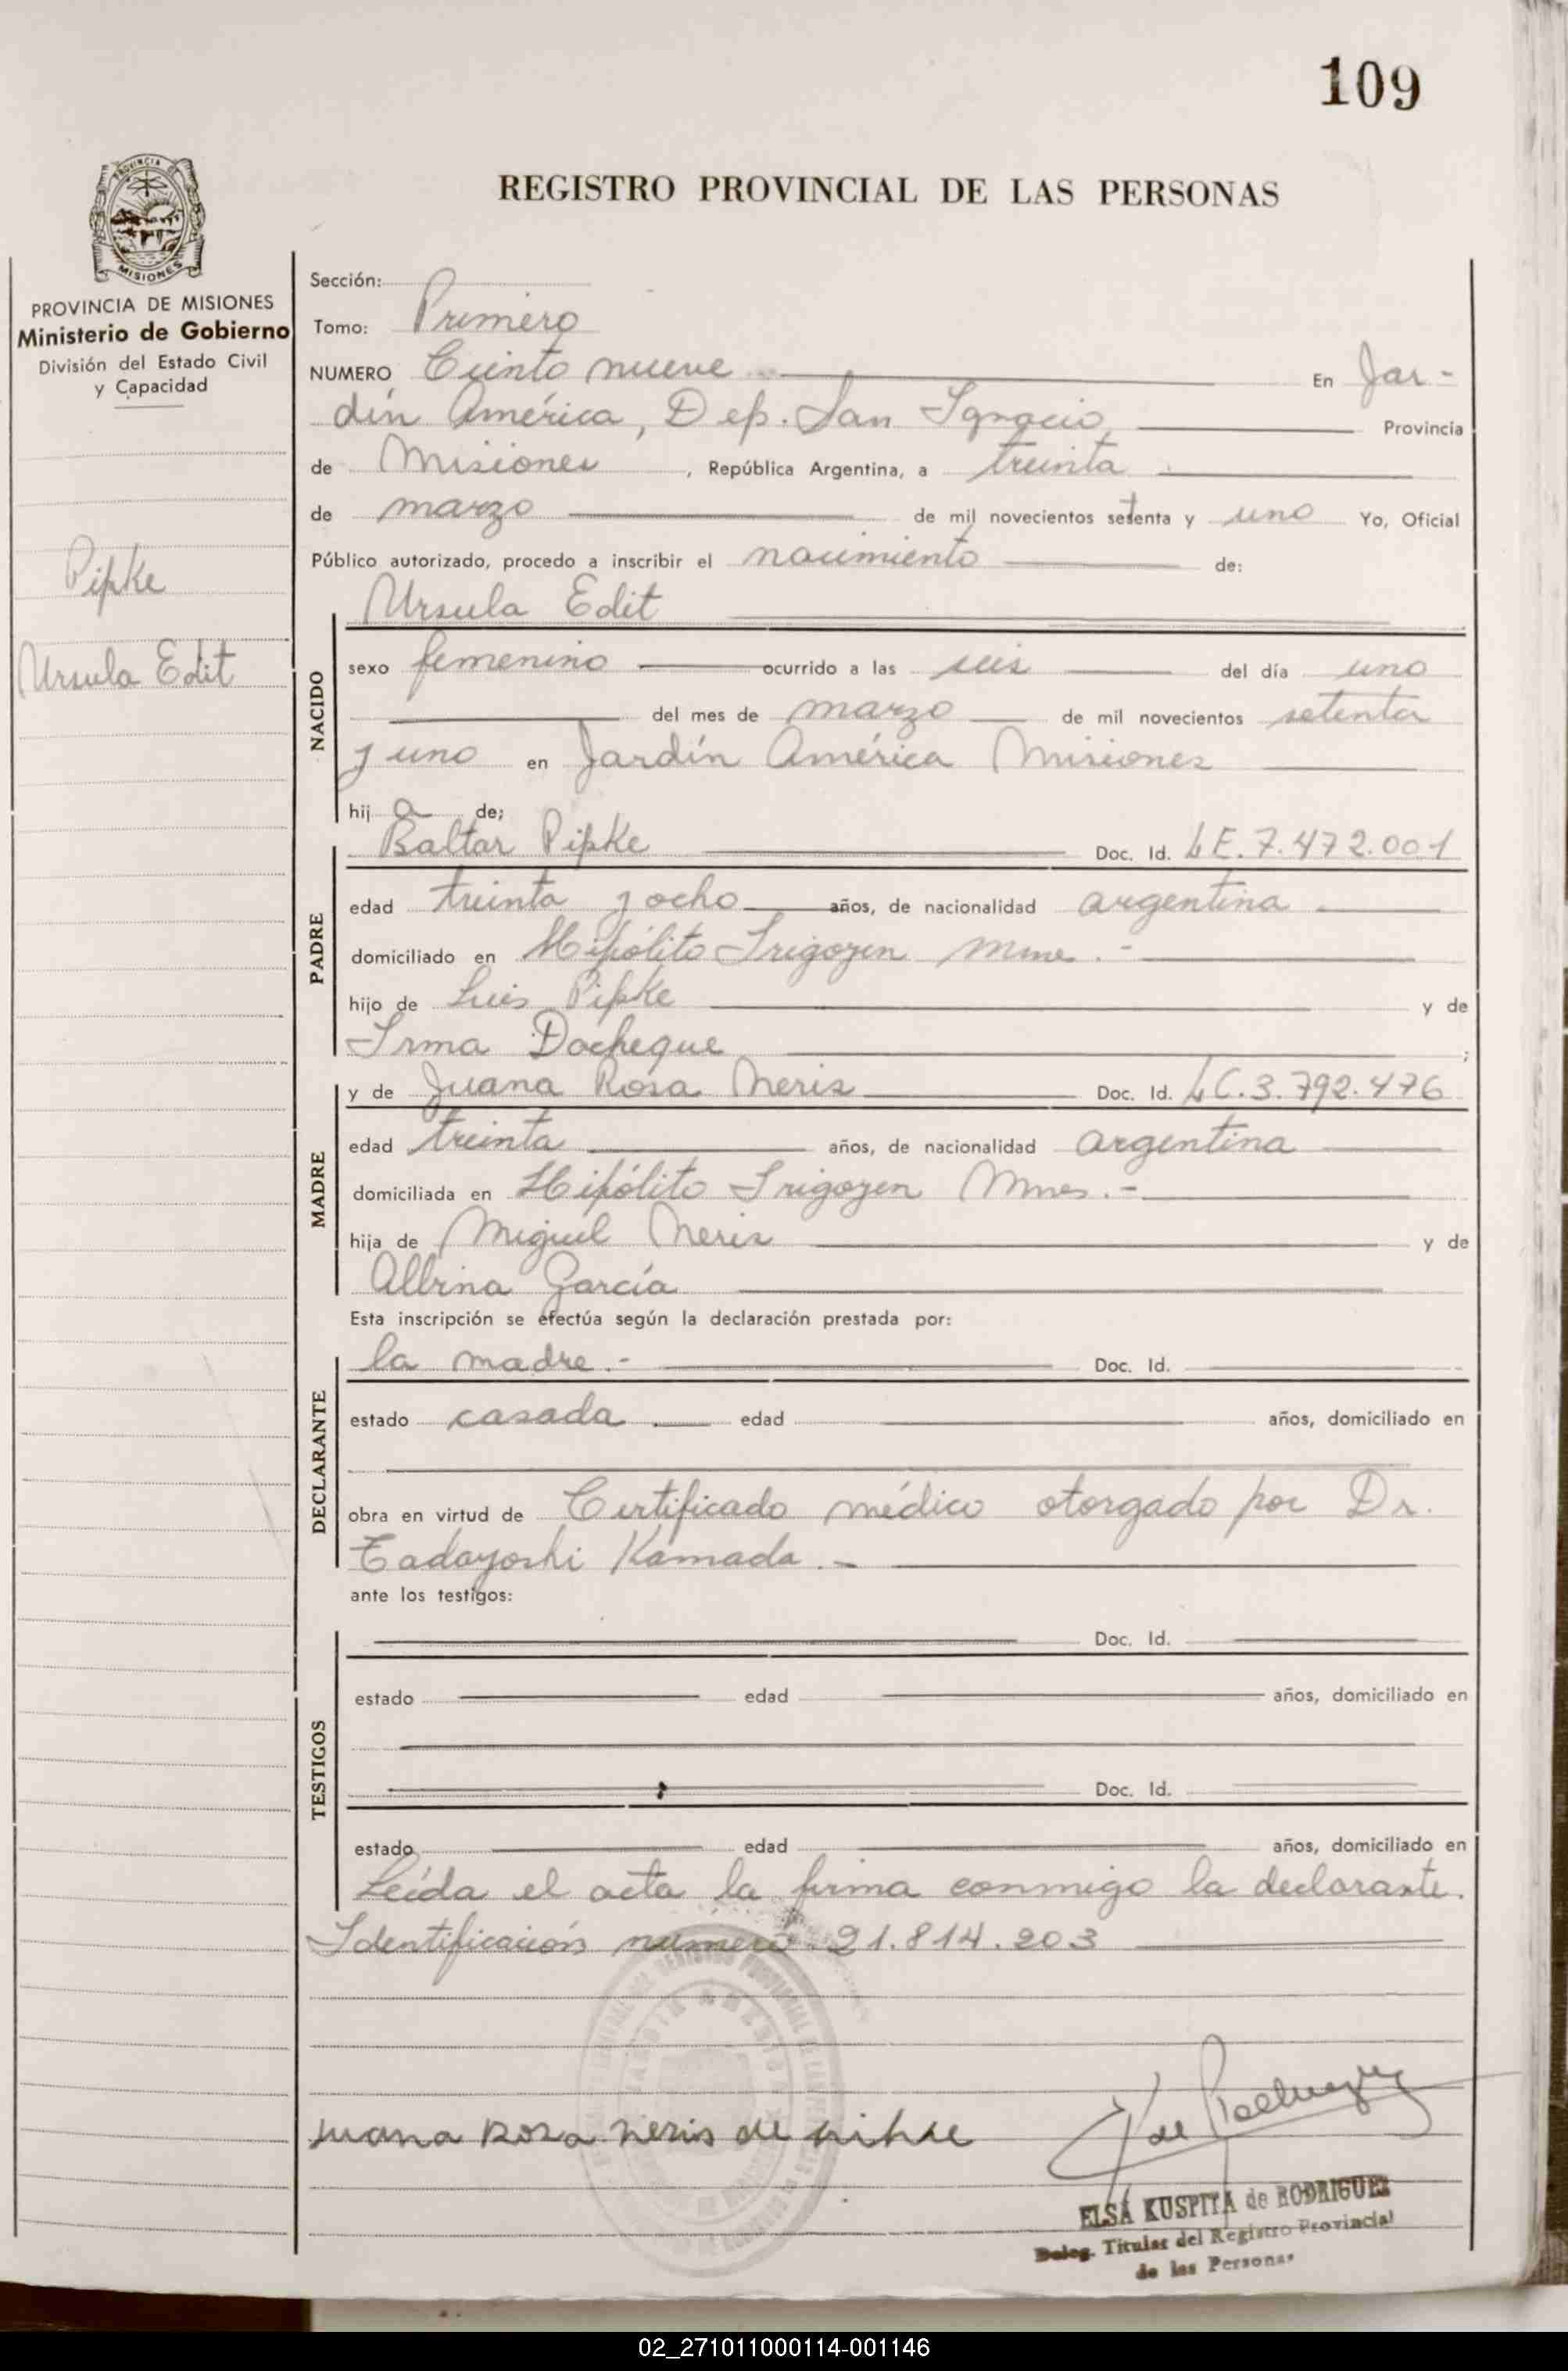 109
REGISTRO PROVINCIAL DE LAS PERSONAS
PROVINCIA
MISIONES
PROVINCIA DE MISIONES
Ministerio de Gobierno
División del Estado Civil
y Capacidad
Pipke
Ursula Edit
Sección:
Tomo: Primero
NUMERO Ciento nueve En Jar-
dín América, Dep. San Ignacio, Provincia
de Misiones, República Argentina, a treinta
de marzo de mil novecientos setenta y uno Yo, Oficial
Público autorizado, procedo a inscribir el nacimiento de:
Ursula Edit
NACIDO
sexo femenino ocurrido a las seis del día uno
del mes de marzo de mil novecientos setenta
y uno en Jardín América Misiones
hij a de;
PADRE
Baltar Pipke Doc. Id. LE.7.472.001
edad treinta y ocho años, de nacionalidad argentina
domiciliado en Hipólito Irigoyen Mnes.-
hijo de Luis Pipke y de
Irma Docheque ;
MADRE
y de Juana Rosa Neris Doc. Id. LC.3.792.476
edad treinta años, de nacionalidad argentina
domiciliada en Hipólito Irigoyen Mnes.-
hija de Miguel Neris y de
Albina García
Esta inscripción se efectúa según la declaración prestada por:
DECLARANTE
la madre.- Doc. Id.
estado casada edad años, domiciliado en
obra en virtud de Certificado médico otorgado por Dr.
Tadayoshi Kamada.-
ante los testigos:
TESTIGOS
Doc. Id.
estado edad años, domiciliado en
Doc. Id.
estado edad años, domiciliado en
Leída el acta la firma conmigo la declarante.
Identificación número 21.814.203
Juana Rosa neris de pipke
ELSA KUSPITA de RODRIGUEZ
Deleg. Titular del Registro Provincial
de las Personas
02_271011000114-001146